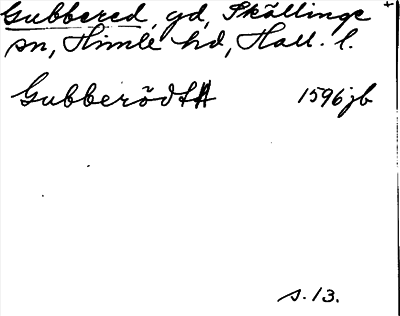 Gubbered, gd, Skällinge +
sn, Himle hd, Hall. l.
Gubberödt 1596 jb
s. 13.